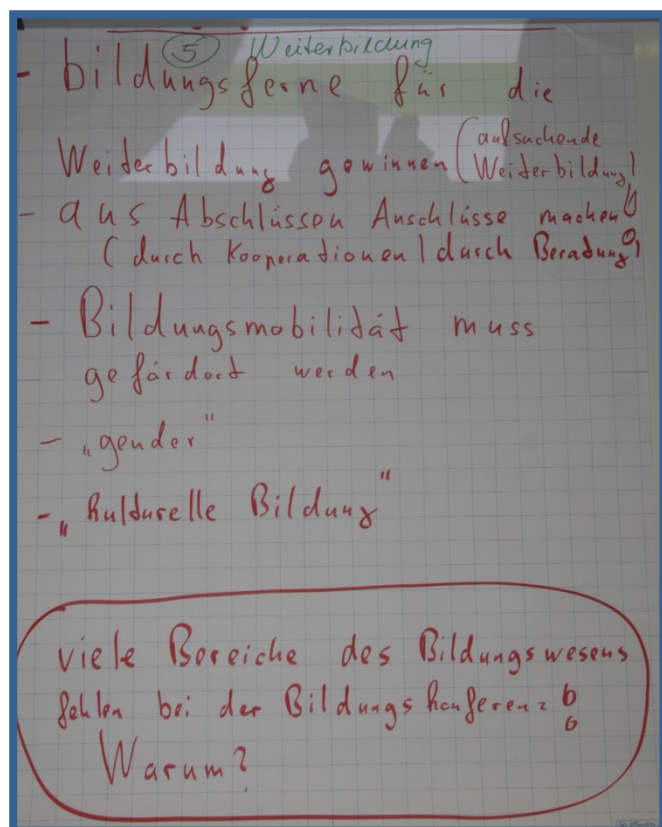 5 Weiterbildung
- bildungsferne für die
Weiterbildung gewinnen (aufsuchende
Weiterbildung)
- aus Abschlüssen Anschlüsse machen!
(durch Kooperationen / durch Beratung)
- Bildungsmobilität muss
gefördert werden
- „gender"
- „kulturelle Bildung"
viele Bereiche des Bildungswesens
fehlen bei der Bildungskonferenz!
Warum?